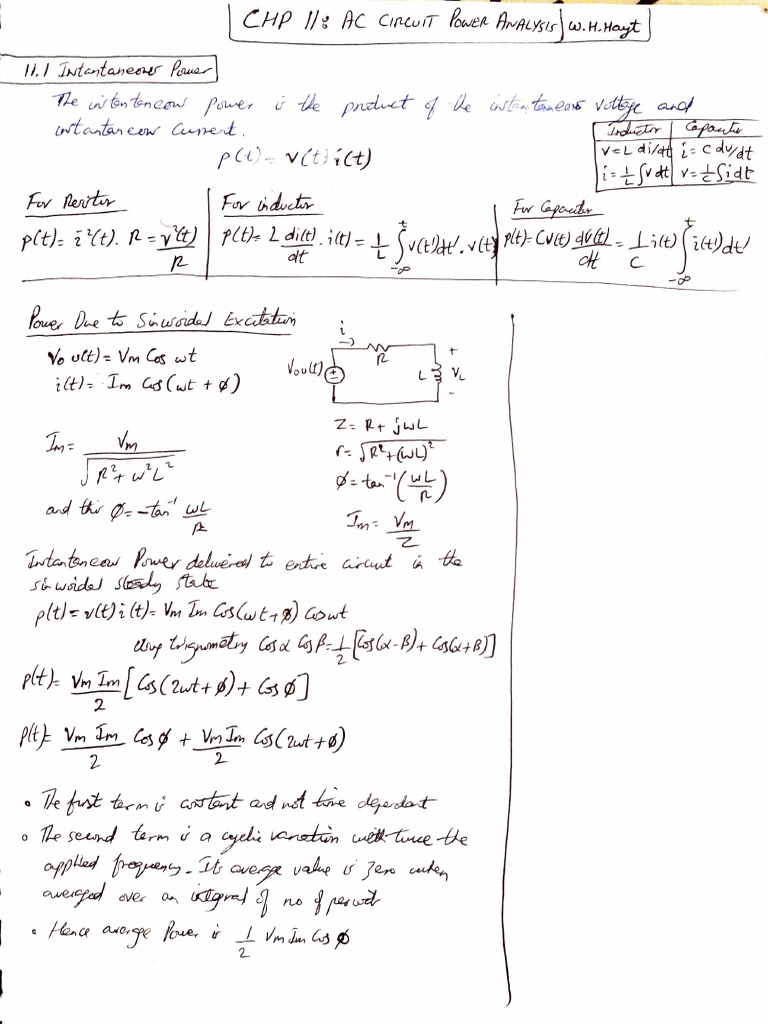 CHP 11: AC CIRCUIT POWER ANALYSIS W.H.Hayt
11.1 Instantaneous Power
The instantaneous power is the product of the instantaneous voltage and
instantaneous current.
p(t) = v(t) i(t)
Inductor | Capacitor
v = L di/dt | i = C dv/dt
i = 1/L ∫v dt | v = 1/C ∫i dt
For Resistor
p(t) = i²(t). R = v²(t)/R
For inductor
p(t) = L di(t)/dt . i(t) = 1/L ∫_{-∞}^{t} v(t')dt'. v(t)
For Capacitor
p(t) = Cv(t) dv(t)/dt = 1/C i(t) ∫_{-∞}^{t} i(t')dt'
Power Due to Sinusoidal Excitation
Vo u(t) = Vm Cos wt
i(t) = Im Cos(wt + ø)
i
R
Vo u(t)
±
L
+
VL
-
Im = Vm / √(R² + w²L²)
and this ø = -tan⁻¹ wL/R
Z = R + jwL
r = √(R² + (wL)²)
ø = tan⁻¹(wL/R)
Im = Vm/Z
Instantaneous Power delivered to entire circuit in the
sinusoidal steady state
p(t) = v(t) i(t) = Vm Im Cos(wt + ø) Cos wt
using trignometry Cos α Cos β = 1/2 [Cos(α-β) + Cos(α+β)]
p(t) = Vm Im/2 [Cos(2wt + ø) + Cos ø]
p(t) = Vm Im/2 Cos ø + Vm Im/2 Cos(2wt + ø)
• The first term is constant and not time dependant
• The second term is a cyclic variation with twice the
applied frequency. Its average value is zero when
averaged over an integral of no of periods
• Hence average Power is 1/2 Vm Im Cos ø